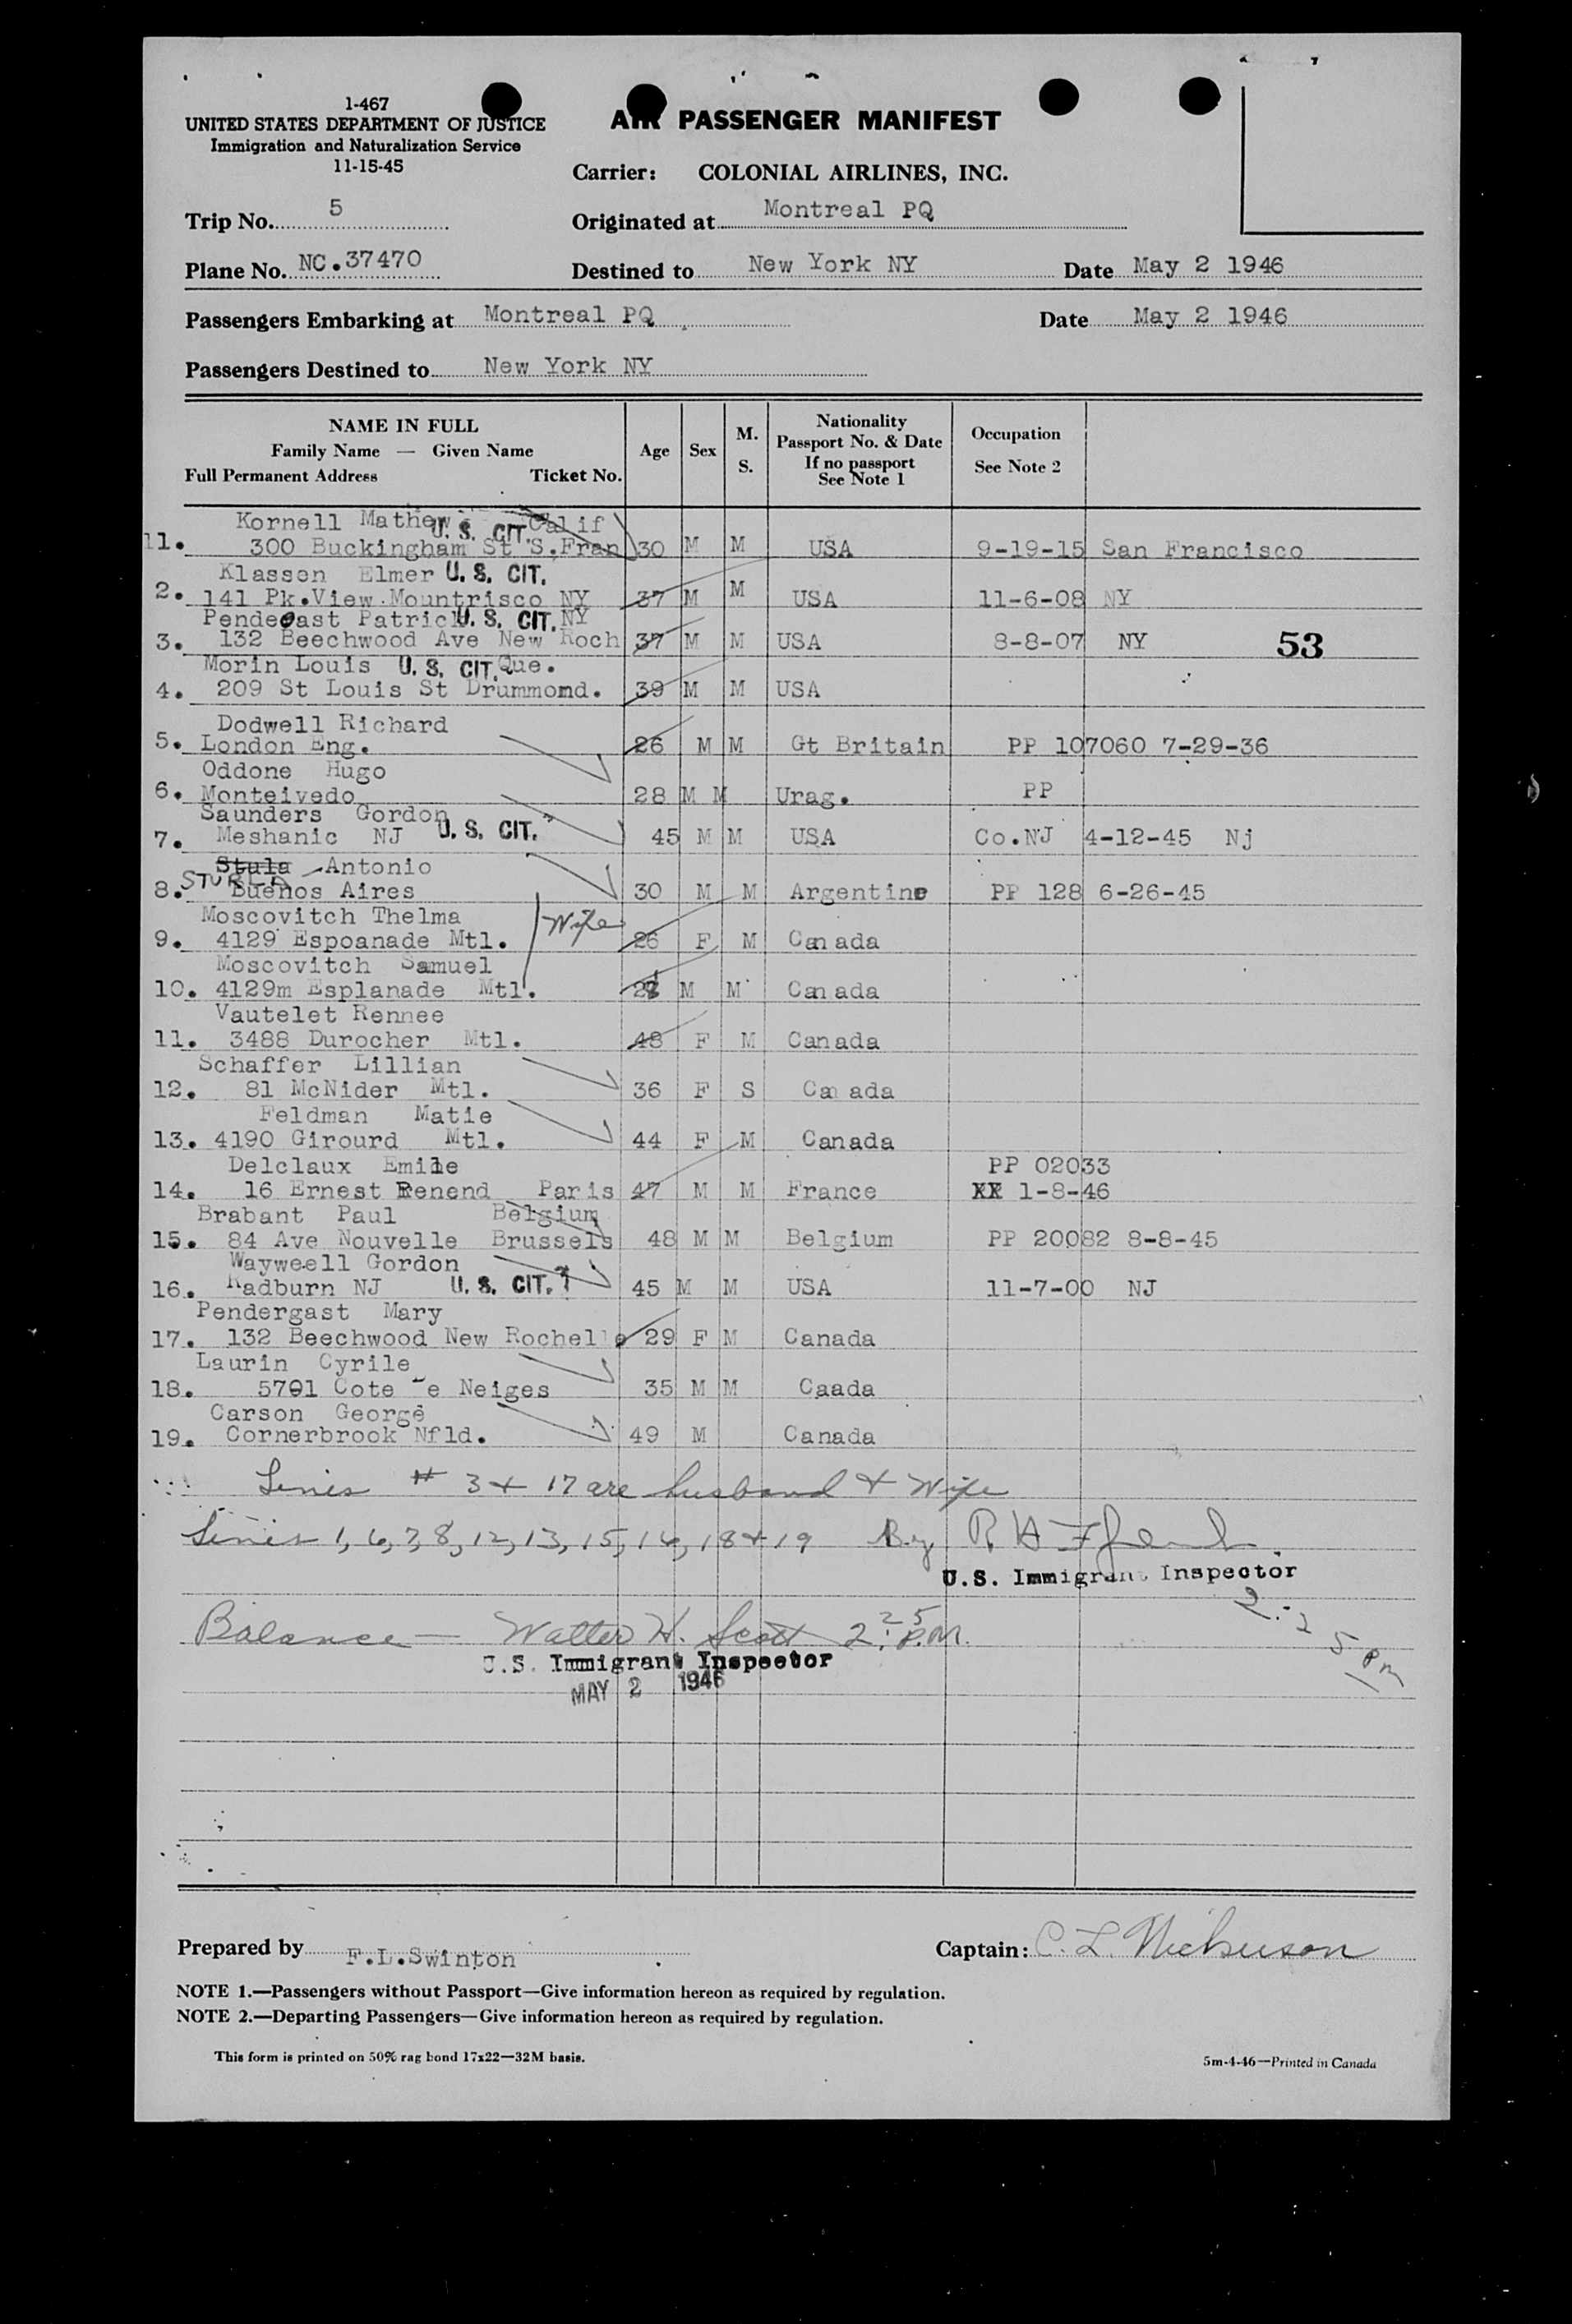 1-467
UNITED STATES DEPARTMENT OF JUSTICE
Immigration and Naturalization Service
11-15-45
AIR PASSENGER MANIFEST
Carrier: COLONIAL AIRLINES, INC.
Trip No. 5
Originated at Montreal PQ
Plane No. NC.37470
Destined to New York NY Date May 2 1946
Passengers Embarking at Montreal PQ Date May 2 1946
Passengers Destined to New York NY
NAME IN FULL
Family Name — Given Name
Full Permanent Address Ticket No.
Age Sex M. S.
Nationality
Passport No. & Date
If no passport
See Note 1
Occupation
See Note 2
Kornell Mathew U. S. CIT. Calif
11. 300 Buckingham St S.Fran 30 M M USA 9-19-15 San Francisco
Klassen Elmer U. S. CIT.
2. 141 Pk.View Mountrisco NY 37 M M USA 11-6-08 NY
Pendegast Patrick U. S. CIT. NY
3. 132 Beechwood Ave New Roch 37 M M USA 8-8-07 NY 53
Morin Louis U. S. CIT. Que.
4. 209 St Louis St Drummond. 39 M M USA
Dodwell Richard
5. London Eng. 26 M M Gt Britain PP 107060 7-29-36
Oddone Hugo
6. Monteivedo 28 M M Urag. PP
Saunders Gordon
7. Meshanic NJ U. S. CIT. 45 M M USA Co.NJ 4-12-45 Nj
Stula Antonio
8. STURLA Buenos Aires 30 M M Argentine PP 128 6-26-45
Moscovitch Thelma
9. 4129 Espoanade Mtl. Wife 26 F M Canada
Moscovitch Samuel
10. 4129m Esplanade Mtl. M M Canada
Vautelet Rennee
11. 3488 Durocher Mtl. 48 F M Canada
Schaffer Lillian
12. 81 McNider Mtl. 36 F S Ca ada
Feldman Matie
13. 4190 Girourd Mtl. 44 F M Canada
Delclaux Emile PP 02033
14. 16 Ernest Renend Paris 47 M M France XX 1-8-46
Brabant Paul Belgium
15. 84 Ave Nouvelle Brussels 48 M M Belgium PP 20082 8-8-45
Wayweell Gordon
16. Radburn NJ U. S. CIT. 45 M M USA 11-7-00 NJ
Pendergast Mary
17. 132 Beechwood New Rochelle 29 F M Canada
Laurin Cyrile
18. 5701 Cote e Neiges 35 M M Caada
Carson George
19. Cornerbrook Nfld. 49 M Canada
Lines # 3 + 17 are husband + Wife
Lines 1, 6, 7, 8, 12, 13, 15, 16, 18 + 19 By R H
U.S. Immigrant Inspector
2:25 PM
Balance — Walter H. Scott 2:25 P.M.
U.S. Immigrant Inspector
MAY 2 1946
Prepared by F.L.Swinton
Captain: C. L. Nickerson
NOTE 1.—Passengers without Passport—Give information hereon as required by regulation.
NOTE 2.—Departing Passengers—Give information hereon as required by regulation.
This form is printed on 50% rag bond 17x22—32M basis.
5m-4-46—Printed in Canada